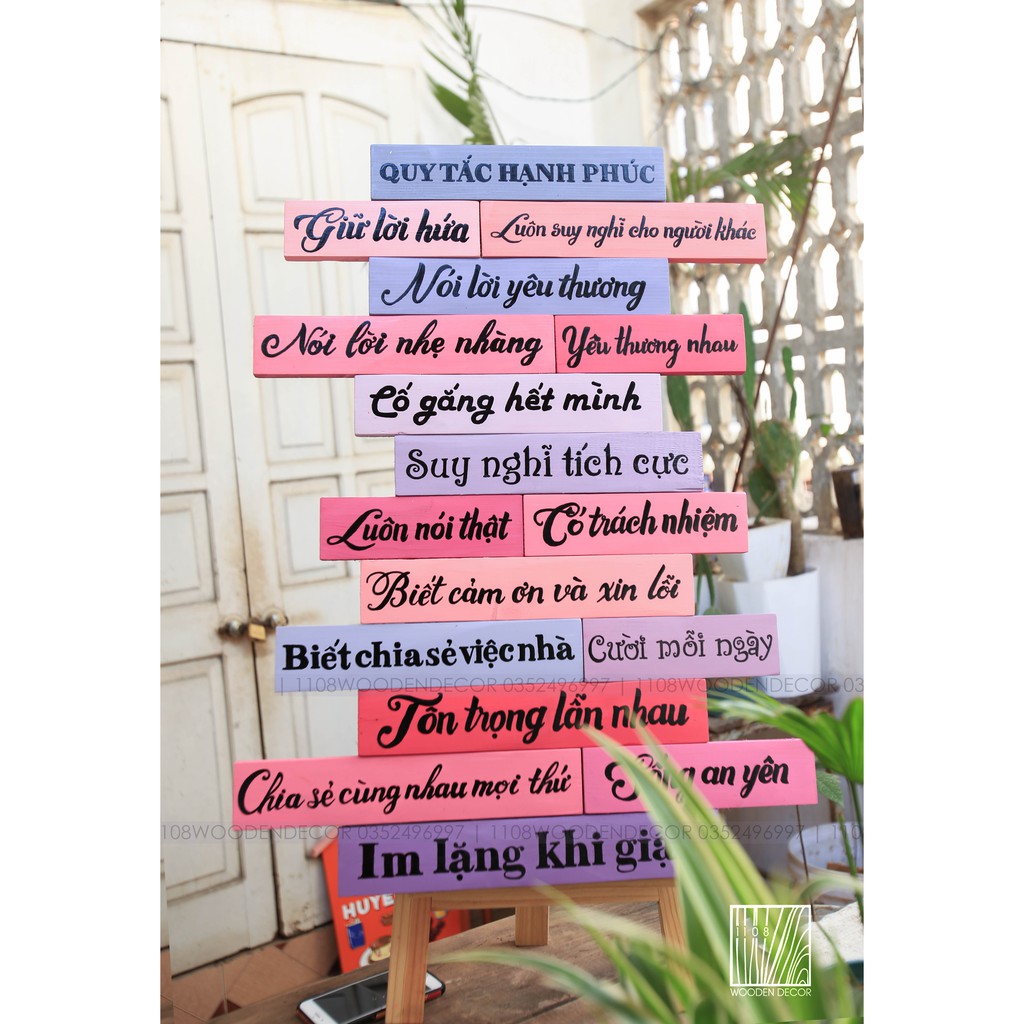 QUY TẮC HẠNH PHÚC
Giữ lời hứa
Luôn suy nghĩ cho người khác
Nói lời yêu thương
Nói lời nhẹ nhàng
Yêu thương nhau
Cố gắng hết mình
Suy nghĩ tích cực
Luôn nói thật
Có trách nhiệm
Biết cảm ơn và xin lỗi
Biết chia sẻ việc nhà
Cười mỗi ngày
| 1108WOODENDECOR 0352496997 | 1108WOODENDECOR 03
Tôn trọng lẫn nhau
Chia sẻ cùng nhau mọi thứ
an yên
1108WOODENDECOR 0352496997 | 1108WOODENDECOR 0352496997 | 1
Im lặng khi
HUYE
1108
WOODEN DECOR